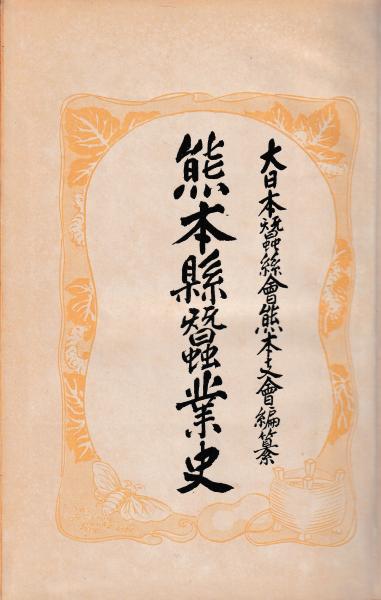 大日本蠶絲會熊本支會編纂
熊本縣蠶業史